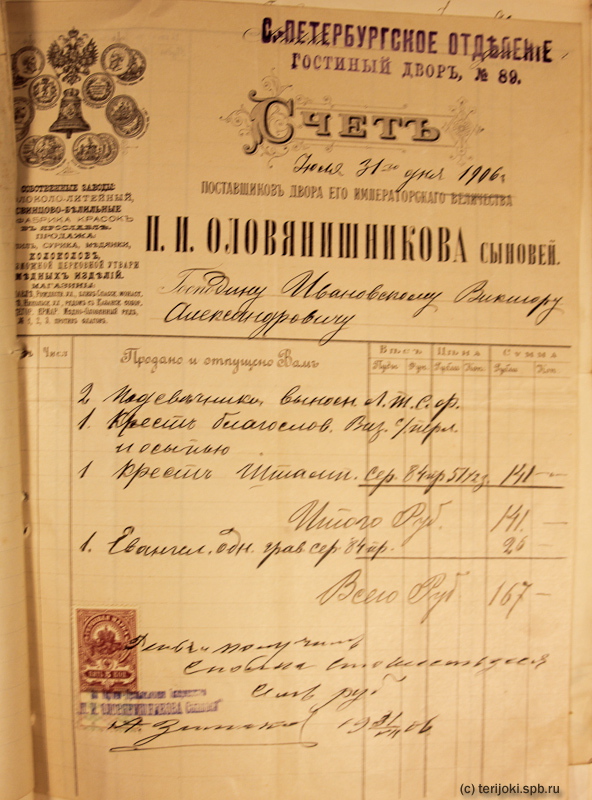 С.ПЕТЕРБУРГСКОЕ ОТДѢЛЕНІЕ
ГОСТИНЫЙ ДВОРЪ, № 89.
СЧЕТЪ
Іюля 31го дня 1906 г
ПОСТАВЩИКОВЪ ДВОРА ЕГО ИМПЕРАТОРСКАГО ВЕЛИЧЕСТВА
П. И. ОЛОВЯНИШНИКОВА СЫНОВЕЙ.
СОБСТВЕННЫЕ ЗАВОДЫ:
КОЛОКОЛО-ЛИТЕЙНЫЙ,
СВИНЦОВО-БѢЛИЛЬНЫЕ
ФАБРИКА КРАСОКЪ
ВЪ ЯРОСЛАВЛѢ.
ПРОДАЖА:
СУРИКА, МѢДЯНКИ,
КОЛОКОЛОВЪ,
ЦЕРКОВНОЙ УТВАРИ
МѢДНЫХЪ ИЗДѢЛІЙ.
МАГАЗИНЫ:
Господину Ивановскому Виктору
Александровичу
Числ. Продано и отпущено Вамъ ВѢСЪ ЦѢНА СУММА
Пуды Фун. Рубли Коп. Рубли Коп.
2 подсвѣчника выносн. Л.Т.С.ф.
1. Крестъ благослов. Виз. с/перл.
и осыпью
1 Крестъ Штамп. сер. 84 пр 141 —
Итого Руб. 141. —
1. Евангел. Одн. грав сер 84 пр. 26 —
Всего Руб 167 —
Деньги получилъ
сполна сто шестьдеся
семь руб
ПЯТЬ КОП.
П. И. ОЛОВЯНИШНИКОВА СЫНОВЕЙ
19 31/VII 06
(c) terijoki.spb.ru